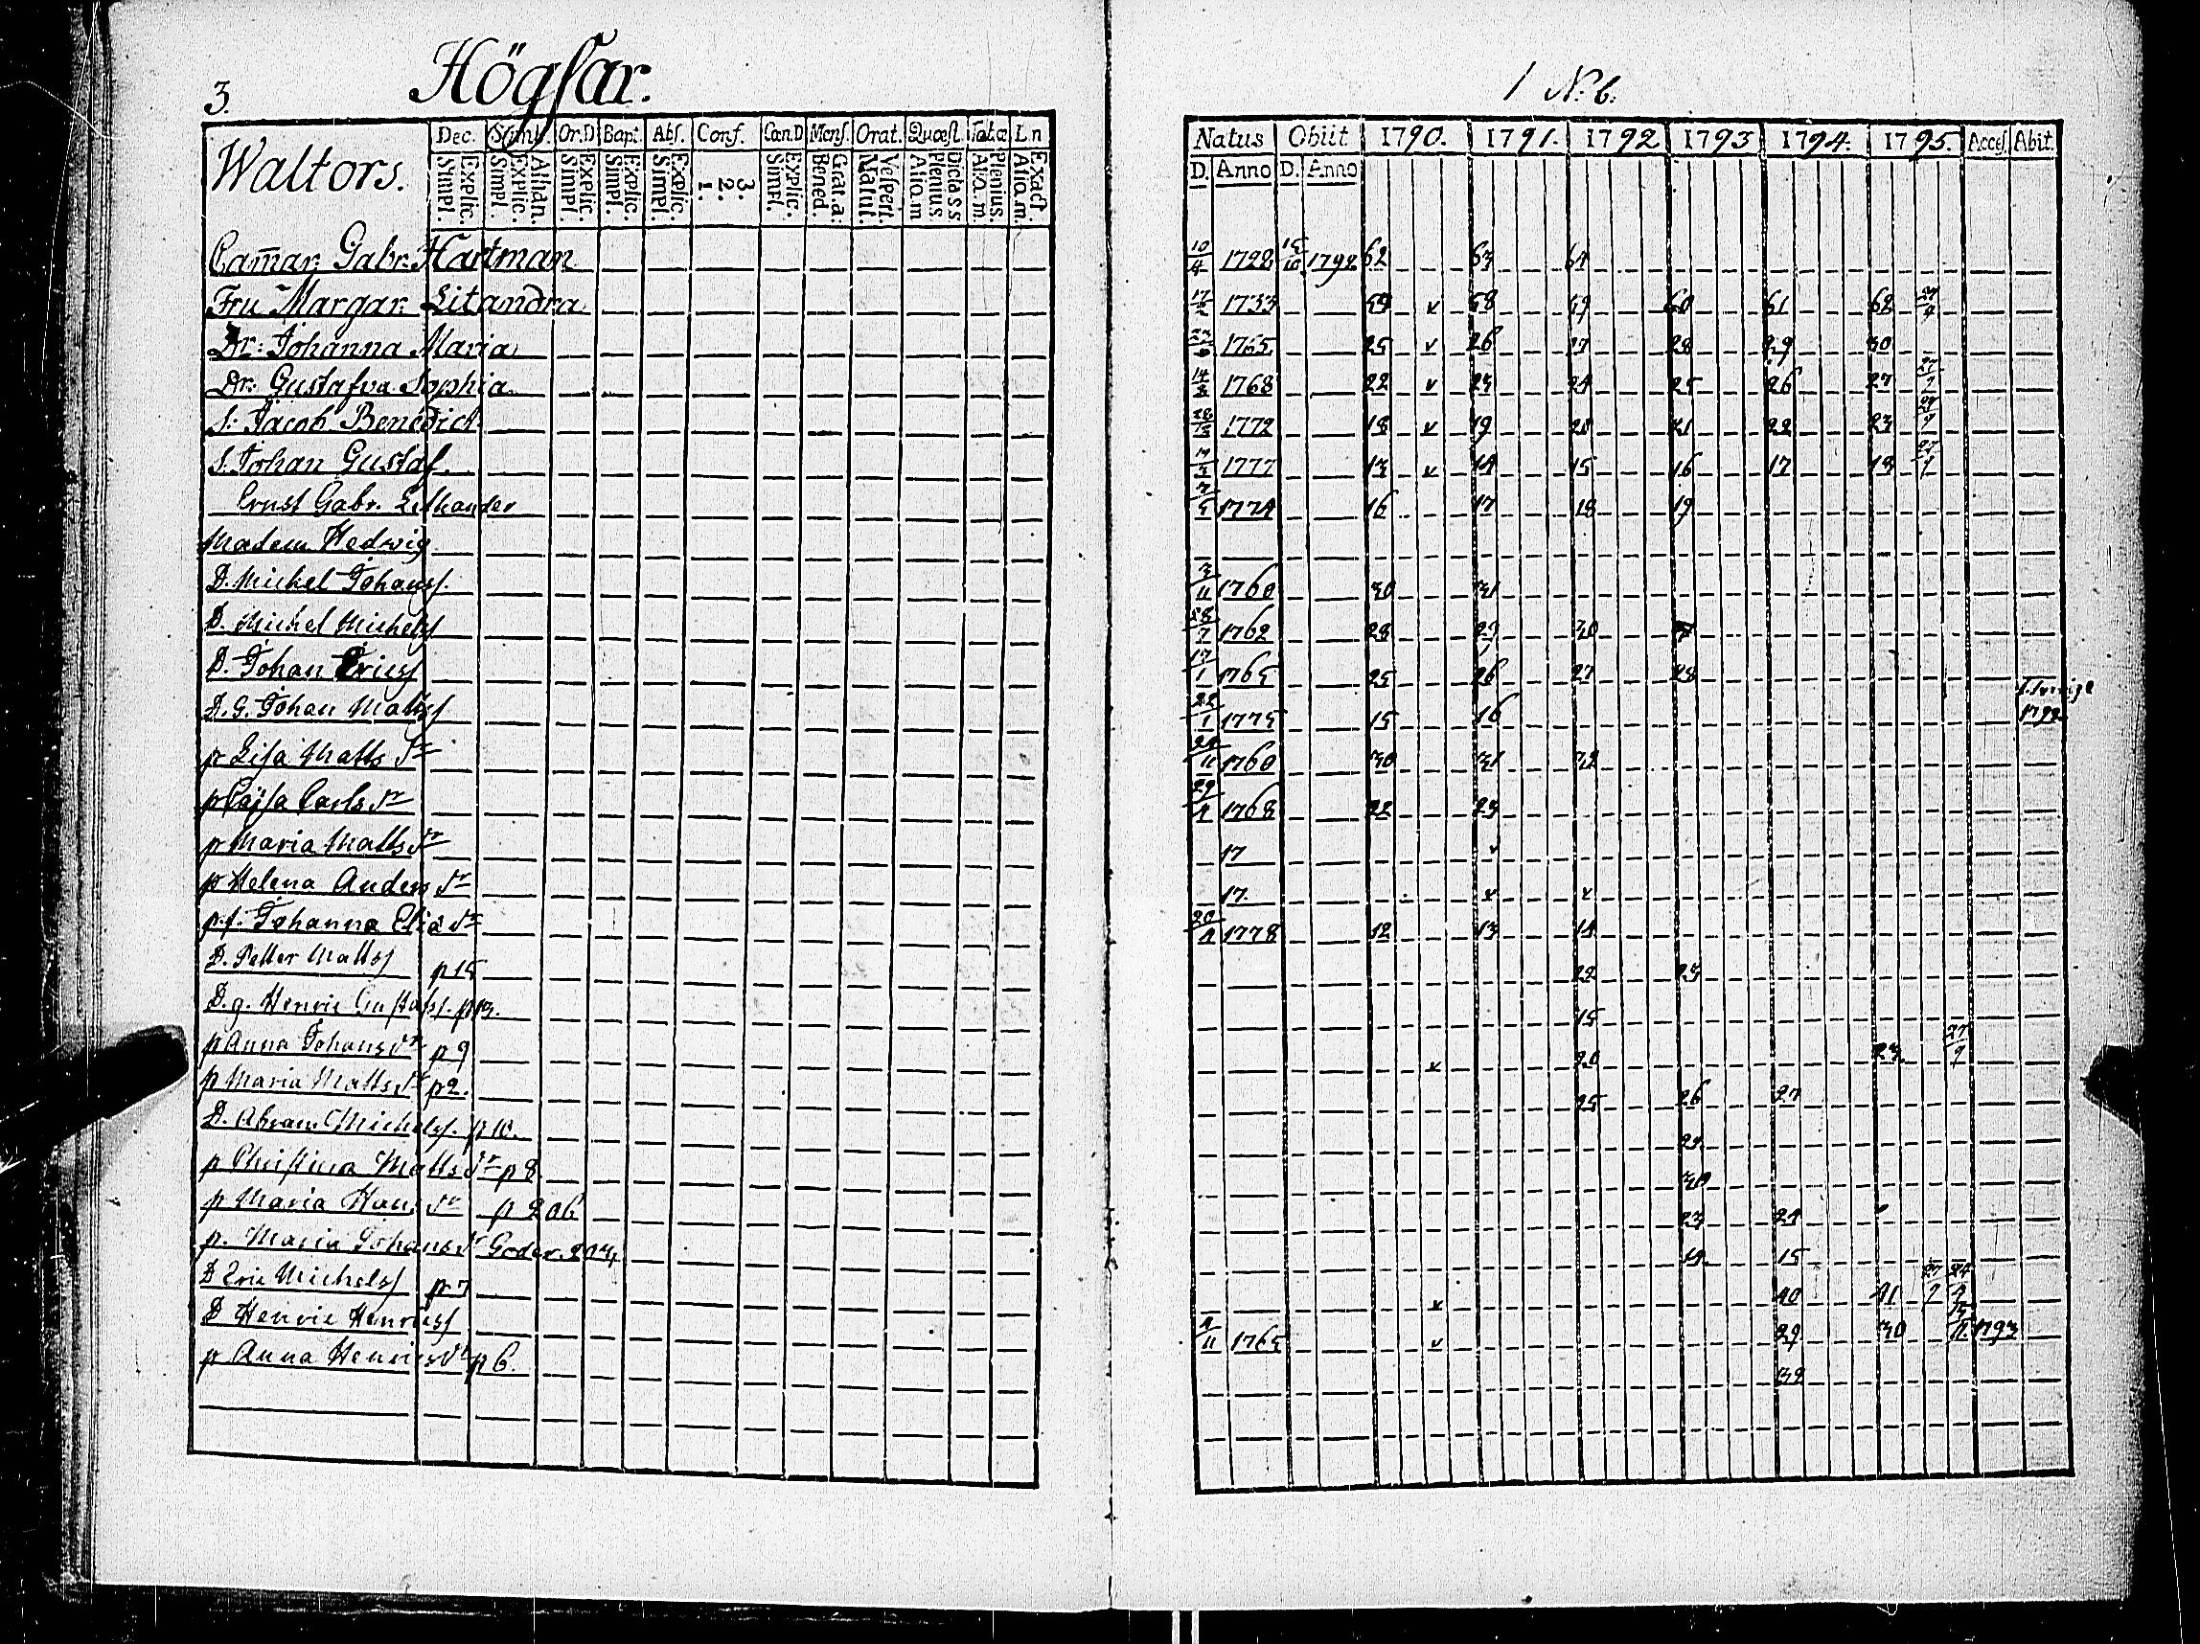 3.
Högsar.
1 N:6.
Waltors.
Dec. Symb. Or.D Bapt. Abs. Conf. Cœn.D Mens. Orat. Quæst. Tabæ L.n
Simpl. Explic. Simpl. Explic. Athan. Simpl. Explic. Simpl. Explic. Simpl. Explic. 1. 2. 3. Simpl. Explic. Bened. Grat.a: Matut. Vespert. Aliq.m Plenius Dicta s s Aliq.m. Plenius. Aliq.m. Exact.
Natus Obiit 1790. 1791. 1792 1793 1794. 1795. Acces. Abit.
D. Anno D. Anno
Cam̄ar. Gabr. Hartman 10/4 1728 15/10 1792 62 63 64
Fru Margar. Litandra 1733 59 v 58 59 60 61 62 27/9
Dr: Johanna Maria 1765 25 v 26 27 28 29 30
Dr: Gustafva Sophia 14/3 1768 22 v 23 24 25 26 27 27/9
S: Jacob Benedict 1772 18 v 19 20 21 22 23 27/9
S. Johan Gustaf 1777 13 v 14 15 16 17 18 27/9
Ernst Gabr. Lithander 7/5 1774 16 17 18 19
Madam Hedwig
D. Michel Johanss. 3/11 1760 30 31
D. Michel Michelss 28/7 1762 28 29 30
D. Johan Ericss 17/1 1765 25 26 27 28
D.G. Johan Mattss 22/1 1775 15 16 t. Sverige 1792
p Lisa Matts dr 24/11 1760 30 31 32
p Cajsa Carls dr 29/4 1768 22 23
p Maria Matts dr 17 v
p Helena Anders dr 17. v v
p.f. Johanna Elia dr 20/4 1778 12 13 14
D. Petter Mattss p 15 22 23
D.g. Henric Gustafss. p 13. 15
p Anna Johans dr p 9 v 20 23 27/9
p Maria Matts dr p 2. 25 26 27
D. Abram Michelss. p 10. 24
p Christina Matts dr p 8 30
p Maria Hans dr p 206 23 24 v
p. Maria Johans dr 14 15
D Eric Michelss p 7 v 40 41 27/9
D Henric Henricss 4/11 1765 v 29 30 1793
p Anna Henrics dr p 6. 38